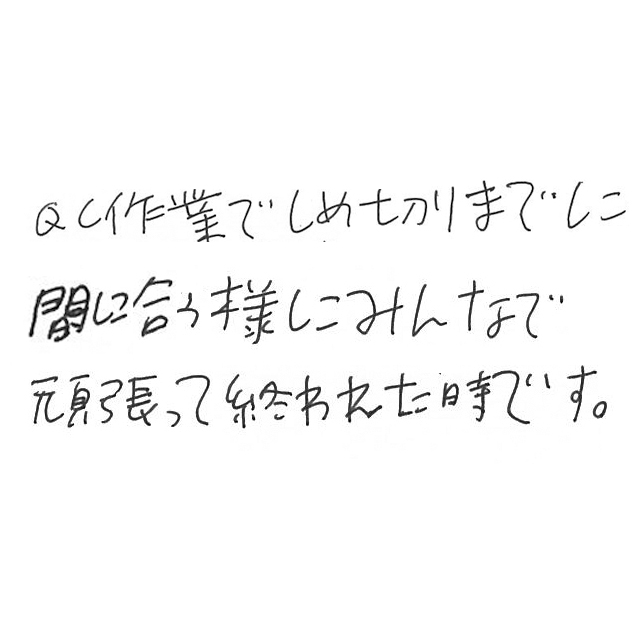 QC作業でしめ切りまでに
間に合う様にみんなで
頑張って終われた時です。